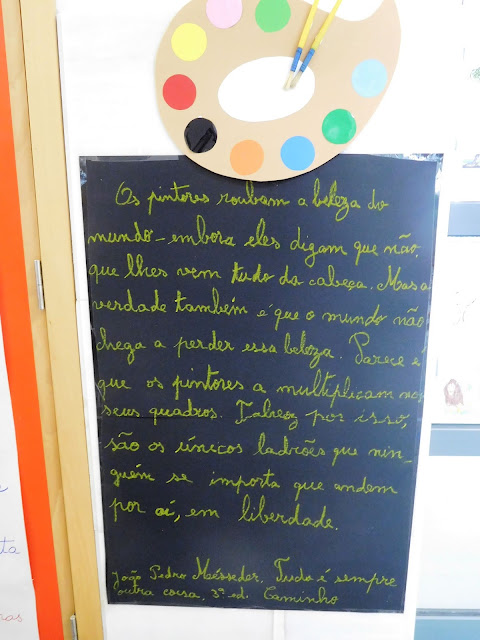 Os pintores roubam a beleza do
mundo - embora eles digam que não,
que lhes vem tudo da cabeça. Mas a
verdade também é que o mundo não
chega a perder essa beleza. Parece é
que os pintores a multiplicam nos
seus quadros. Talvez por isso,
são os únicos ladrões que nin-
guém se importa que andem
por aí, em liberdade.
João Pedro Mésseder, Tudo é sempre
outra coisa, 3ª ed. Caminho
ta
ras